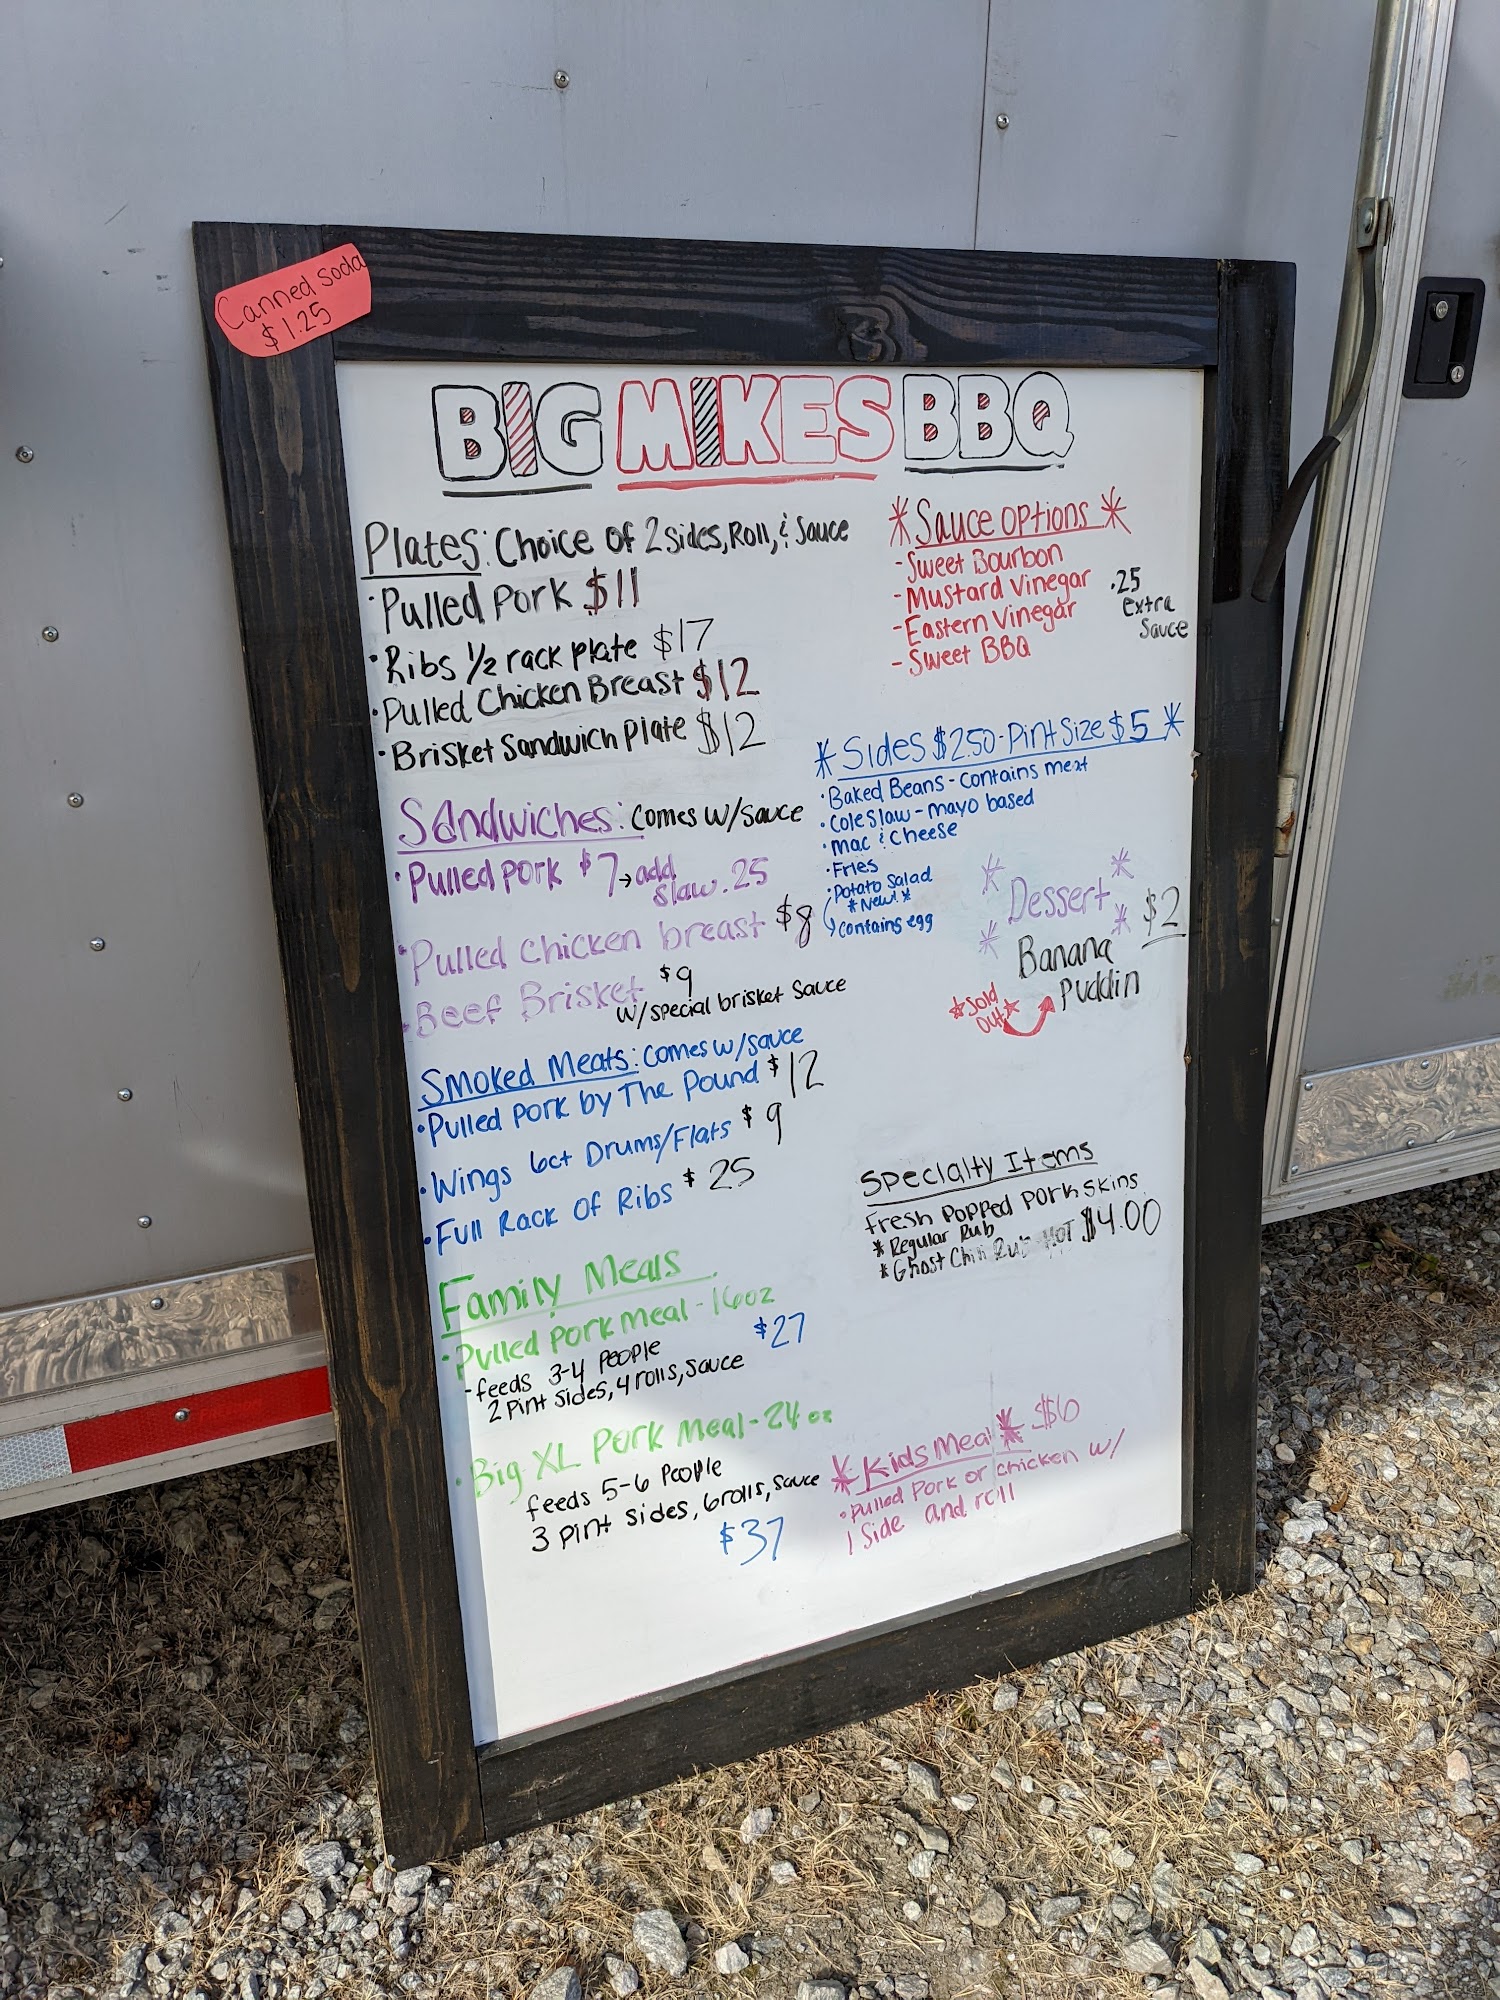 Canned Soda
$1.25
BIG MIKES BBQ
Plates: Choice of 2 sides, Roll, & Sauce
· Pulled Pork $11
· Ribs 1/2 rack plate $17
· Pulled Chicken Breast $12
· Brisket Sandwich plate $12
Sandwiches: Comes w/ sauce
· Pulled pork $7 → add
slaw .25
· Pulled chicken breast $8
· Beef Brisket $9
w/ special brisket sauce
Smoked Meats: Comes w/ sauce
· Pulled pork by The Pound $12
· Wings 6ct Drums/Flats $9
· Full Rack of Ribs $25
Family Meals
· Pulled pork meal - 16oz
$27
- feeds 3-4 people
2 pint sides, 4 rolls, sauce
· Big XL Pork meal - 24oz
feeds 5-6 people
3 pint sides, 6 rolls, sauce
$37
* Sauce options *
- Sweet Bourbon
- Mustard Vinegar
- Eastern Vinegar
- Sweet BBQ
.25
extra
Sauce
* Sides $2.50 - Pint Size $5 *
· Baked Beans - contains meat
· Coleslaw - mayo based
· mac & cheese
· Fries
· Potato Salad
* New! *
contains egg
* Dessert * $2
Banana
Puddin
* Sold
out *
Specialty Items
Fresh Popped Pork Skins
* Regular Rub
* Ghost Chili Rub HOT $4.00
* Kids Meal * $6
· Pulled Pork or chicken w/
1 side and roll